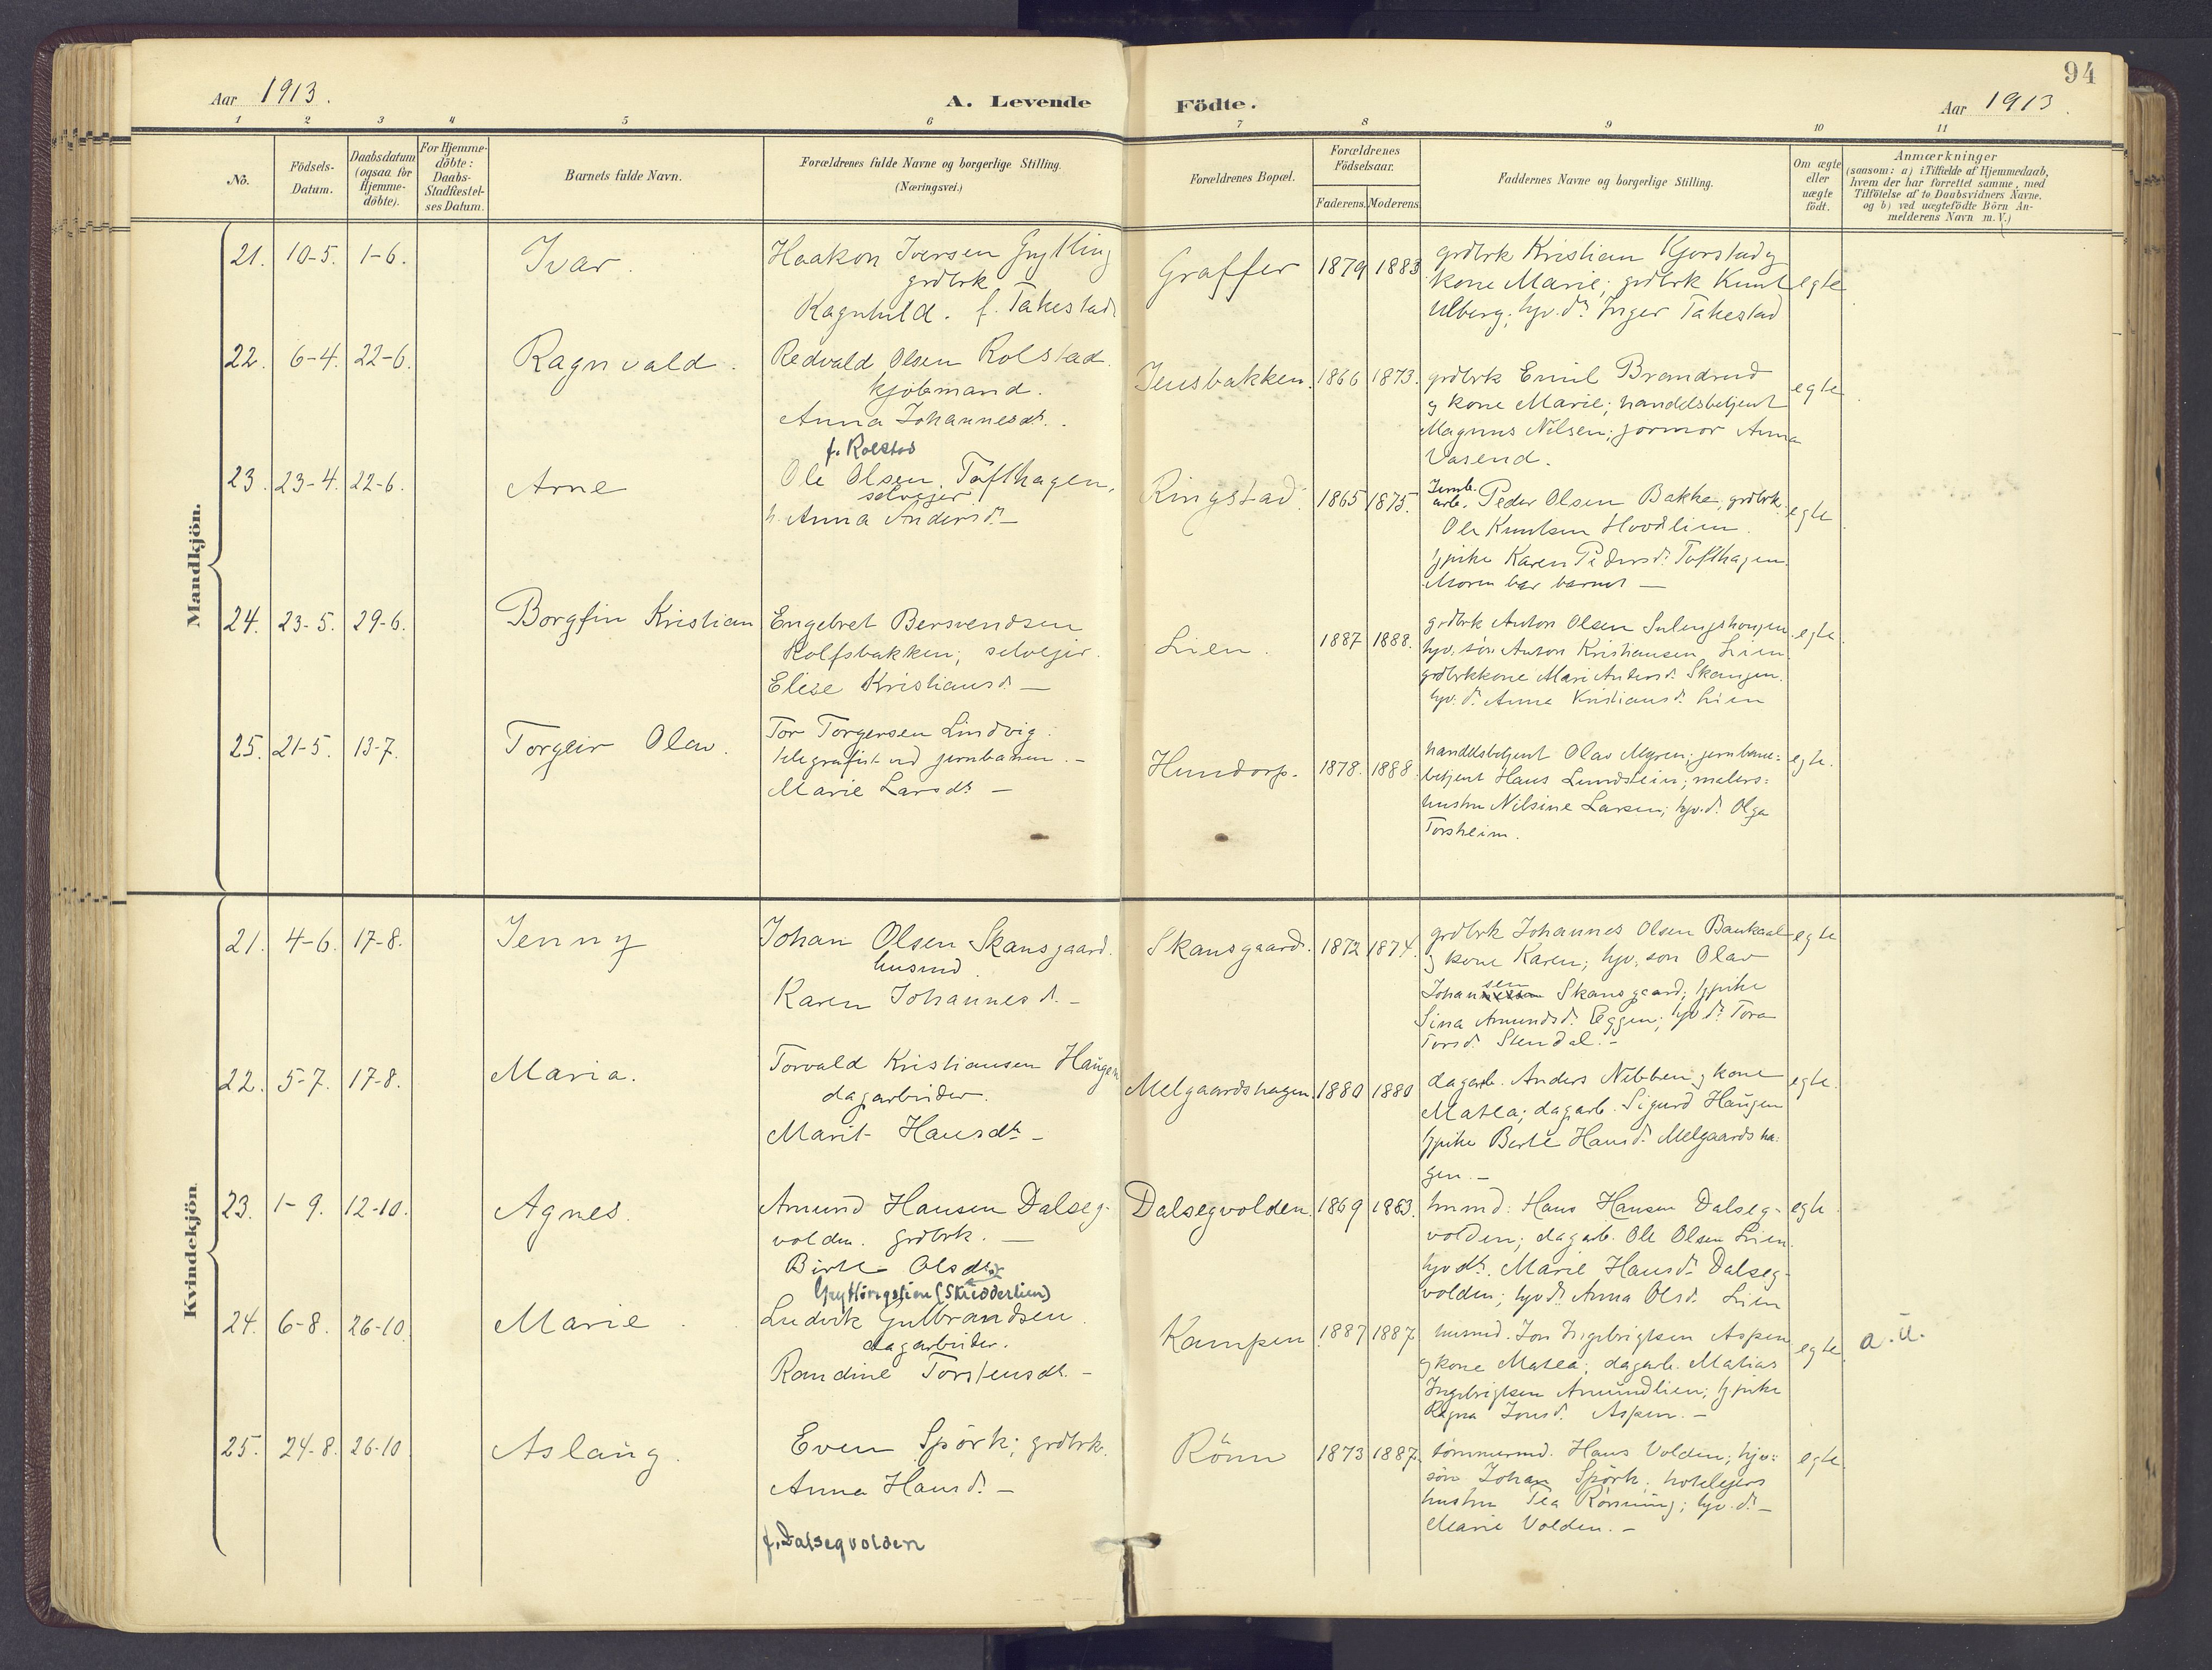 94
Aar 1913.
A. Levende Födte.
Aar 1913.
1 2 3 4 5 6 7 8 9 10 11
No.
Födsels-Datum.
Daabsdatum (ogsaa for Hjemme-döbte).
For Hjemme-döbte: Daabs-Stadfæstel-ses Datum.
Barnets fulde Navn.
Forældrenes fulde Navne og borgerlige Stilling.
(Næringsvei.)
Forældrenes Bopæl.
Forældrenes Födselsaar.
Faderens. Moderens.
Faddernes Navne og borgerlige Stilling.
Om ægte eller uægte födt.
Anmærkninger
(saasom: a) i Tilfælde af Hjemmedaab,
hvem der har forrettet samme, med
Tilföielse af to Daabsvidners Navne,
og b) ved uægtefödte Börn An-
melderens Navn m. V.)
Mandkjön.
21. 10-5. 1-6. Ivar.
Haakon Iversen Grytting
grdbrk
Ragnhild. f. Takestad
Graffer 1879 1883
grdbrk Kristian Kjorstad og
kone Marie; grdbrk Knut
Ulberg; hjv. dr. Inger Takestad
egte
22. 6-4. 22-6. Ragnvald.
Redvald Olsen Rolstad.
kjöbmand.
Anna Johannesdt.
f. Rolstad
Jensbakken. 1866 1873.
grdbrk Emil Brandrud
og kone Marie; handelsbetjent
Magnus Nilsen; jormor Anna
Vasend.
egte
23. 23-4. 22-6. Arne
Ole Olsen Tofthagen,
selvejer
h. Anna Andersd. –
Ringstad. 1865 1875.
Jernb. arb. Peder Olsen Bakke, grdbrk.
Ole Knutsen Hovdlien
tjpike Karen Pedersd. Tofthagen.
Moren bar barnet –
egte
24. 23-5. 29-6. Borgfin Kristian
Engebret Bersvendsen
Rolfsbakken; selvejer.
Elise Kristiansd. –
Lien. 1887 1888.
grdbrk Anton Olsen Sulengshaugen
hjv. sön Anton Kristiansen Lien.
grdbrkkone Mari Andersd. Skaugen.
hjv. d. Anna Kristiansd. Lien
egte
25. 21-5. 13-7. Torgeir Olav.
Tor Torgersen Lindvig.
telegrafist ved jernbanen. –
Marie Larsdt –
Hundorp. 1878. 1888.
handelsbetjent Olav Myren; jernbane-
betjent Hans Lundstein; malers-
hustru Nilsine Larsen; hjv. d. Olga
Torsheim.
egte.
Kvindekjön.
21. 4-6. 17-8. Jenny
Johan Olsen Skansgaard.
husmd.
Karen Johannesd. –
Skansgaard. 1872 1874.
grdbrk Johannes Olsen Baukaal
og kone Karen; hjv. sön Olav
Johansen Skansgaard; tjpike
Sina Amundsd. Eggen; hjv. d. Tora
Torsd. Stendal. –
egte
22. 5-7. 17-8. Maria.
Torvald Kristiansen Haugen
dagarbeider.
Marit Hansdt. –
Melgaardshagen. 1880 1880
dagarb. Anders Nibben og kone
Matea; dagarb. Sigurd Haugen
tjpike Berte Hansd. Melgaardsha-
gen. –
egte.
23. 1-9. 12-10. Agnes.
Amund Hansen Dalseg-
volden. grdbrk. –
Birte Olsdt.
Dalsegvolden. 1869 1883.
husmd. Hans Hansen Dalseg-
volden; dagarb. Ole Olsen Lien.
hjv dt. Marie Hansd. Dalseg-
volden; hjv d. Anna Olsd. Lien
egte.
24. 6-8. 26-10. Marie.
Gryttingslien (Skredderlien)
Ludvik Gulbrandsen.
dagarbeider.
Randine Torstensdt. –
Kampen 1887 1887
husmd. Jon Ingebrigtsen Aspen
og kone Matea; dagarb. Matias
Ingebrigtsen Amundlien; tjpike
Ragna Jonsd. Aspen. –
egte. a. u.
25. 24-8. 26-10 Aslaug.
Even Spörk; grdbrk.
Anna Hansd. –
f. Dalsegvolden
Rönn 1873 1887.
tömmermd. Hans Volden; hjv.
sön Johan Spörk; hotelejers
hustru Tea Rönning; hjv. d. –
Marie Volden. –
egte.